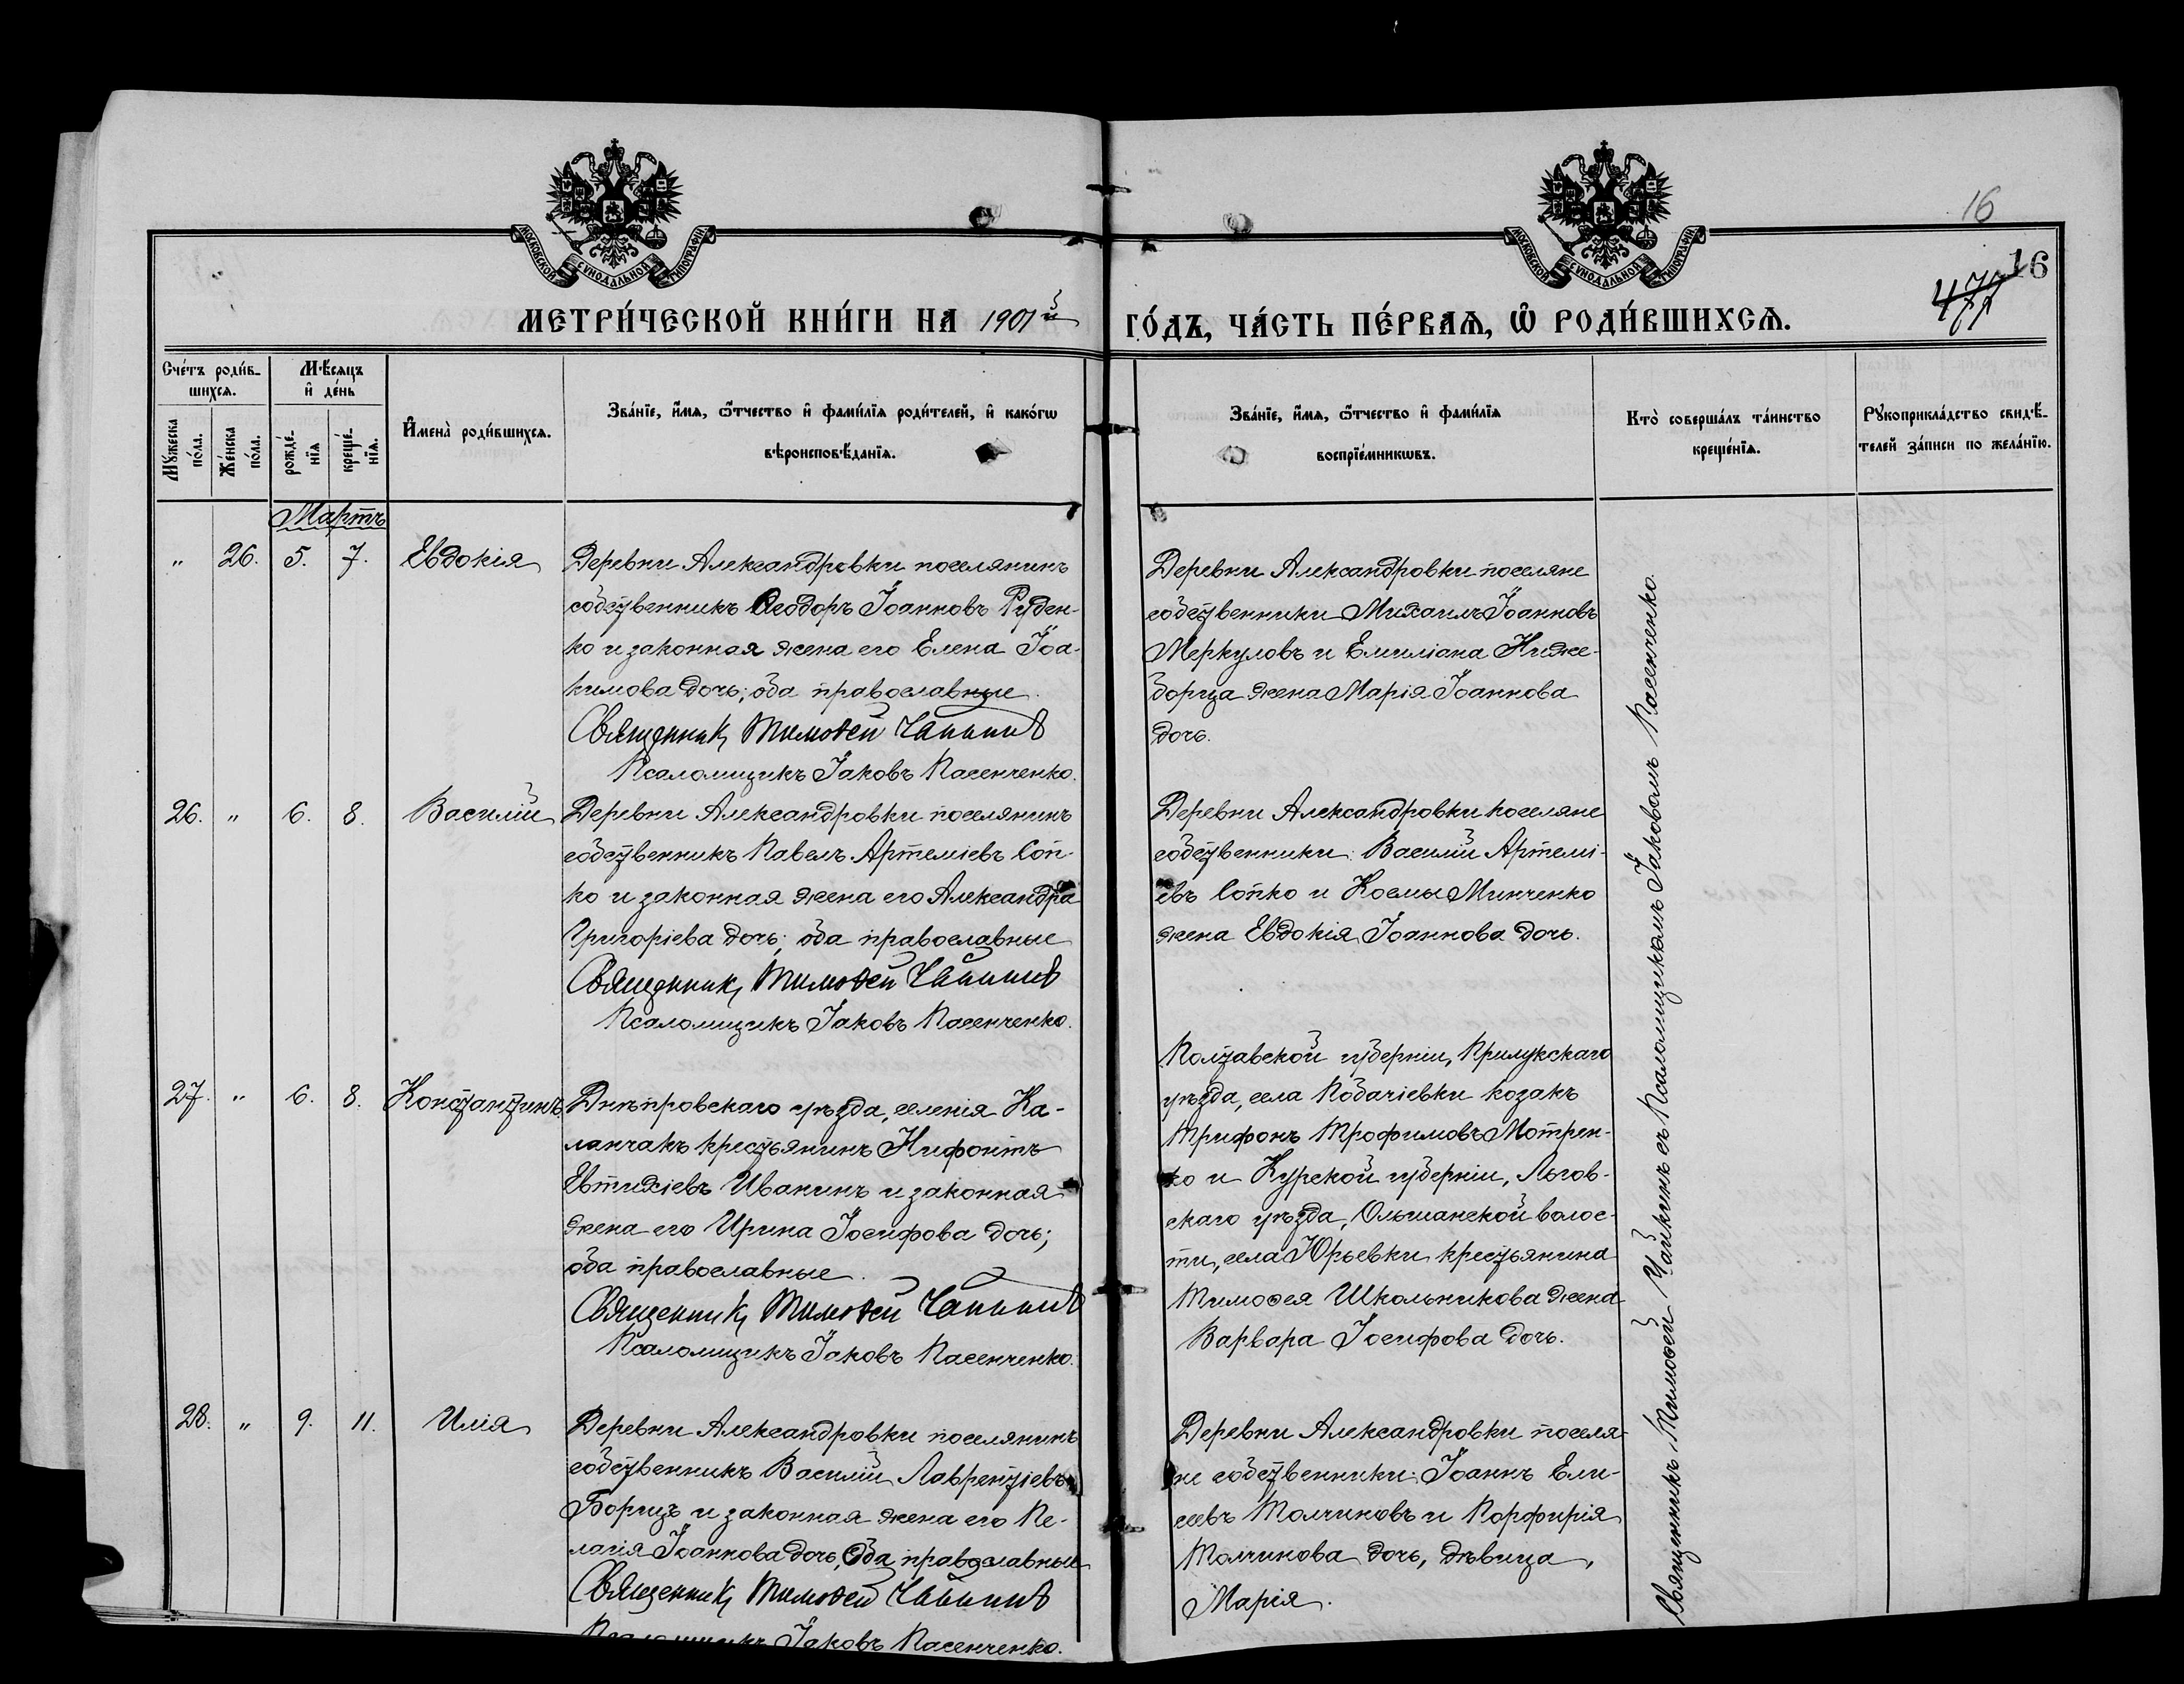 16
16
477
МОСКОВСКОЙ СѴНОДАЛЬНОЙ ТИПОГРАФІИ
МОСКОВСКОЙ СѴНОДАЛЬНОЙ ТИПОГРАФІИ
МЕТРИ́ЧЕСКОЙ КНИ́ГИ НА 1901й ГО́ДЪ, ЧА́СТЬ ПЕ́РВАѦ, Ѡ҆ РОДИ́ВШИХСѦ.
Сче́тъ роди́в-
шихсѧ.
Мѣ́сѧцъ
и҆ де́нь
Мꙋ́жеска
по́ла.
Же́нска
по́ла.
рожде́-
нїѧ
креще́-
нїѧ.
И҆мена̀ роди́вшихсѧ.
Зва́нїе, и҆́мѧ, ѻ҆́тчество и҆ фами́лїѧ роди́телей, и҆ како́гѡ
вѣроисповѣ́данїѧ.
Зва́нїе, и҆́мѧ, ѻ҆́тчество и҆ фами́лїѧ
воспрїе́мникѡвъ.
Кто̀ соверша́лъ та́инство
креще́нїѧ.
Рꙋкоприкла́дство свидѣ́-
телей за́писи по жела́нїю.
Мартъ
" 26. 5. 7. Евдокія
Деревни Александровки поселянинъ
собственникъ Ѳеодоръ Іоанновъ Руден-
ко и законная жена его Елена Іоа-
кимова дочь; оба православные.
Священникъ Тимоѳей Чайкинъ
Псаломщикъ Іаковъ Пасенченко.
Деревни Александровки поселяне
собственники Михаилъ Іоанновъ
Меркуловъ и Емиліана Ниже-
борца жена Марія Іоаннова
дочь.
26. " 6. 8. Василій
Деревни Александровки поселянинъ
собственникъ Павелъ Артеміевъ Соп-
ко и законная жена его Александра
Григоріева дочь; оба православные
Священникъ Тимоѳей Чайкинъ
Псаломщикъ Іаковъ Пасенченко.
Деревни Александровки поселяне
собственники: Василій Артемі-
евъ Сопко и Космы Минченко
жена Евдокія Іоаннова дочь.
27. " 6. 8. Константинъ
Днѣпровскаго уѣзда, селенія Ка-
ланчакъ крестьянинъ Нифонтъ
Евтихіевъ Иванинъ и законная
жена его Ирина Іосифова дочь;
оба православные.
Священникъ Тимоѳей Чайкинъ
Псаломщикъ Іаковъ Пасенченко.
Полтавской губерніи, Прилукскаго
уѣзда, села Кобачіевки козакъ
Трифонъ Трофимовъ Мотрен-
ко и Курской губерніи, Льгов-
скаго уѣзда, Ольшанской волос-
ти, села Юрьевки крестьянина
Тимоѳея Школьникова жена
Варвара Іосифова дочь.
28. " 9. 11. Илія
Деревни Александровки поселянинъ
собственникъ Василій Лаврентіевъ
Борщъ и законная жена его Пе-
лагія Іоаннова дочь, Оба православные
Священникъ Тимоѳей Чайкинъ
Псаломщикъ Іаковъ Пасенченко.
Деревни Александровки поселя-
не собственники: Іоаннъ Ели-
сеевъ Толчиковъ и Порфирія
Толчикова дочь, дѣвица,
Марія.
Священникъ Тимоѳей Чайкинъ съ Псаломщикомъ Іаковомъ Пасенченко.